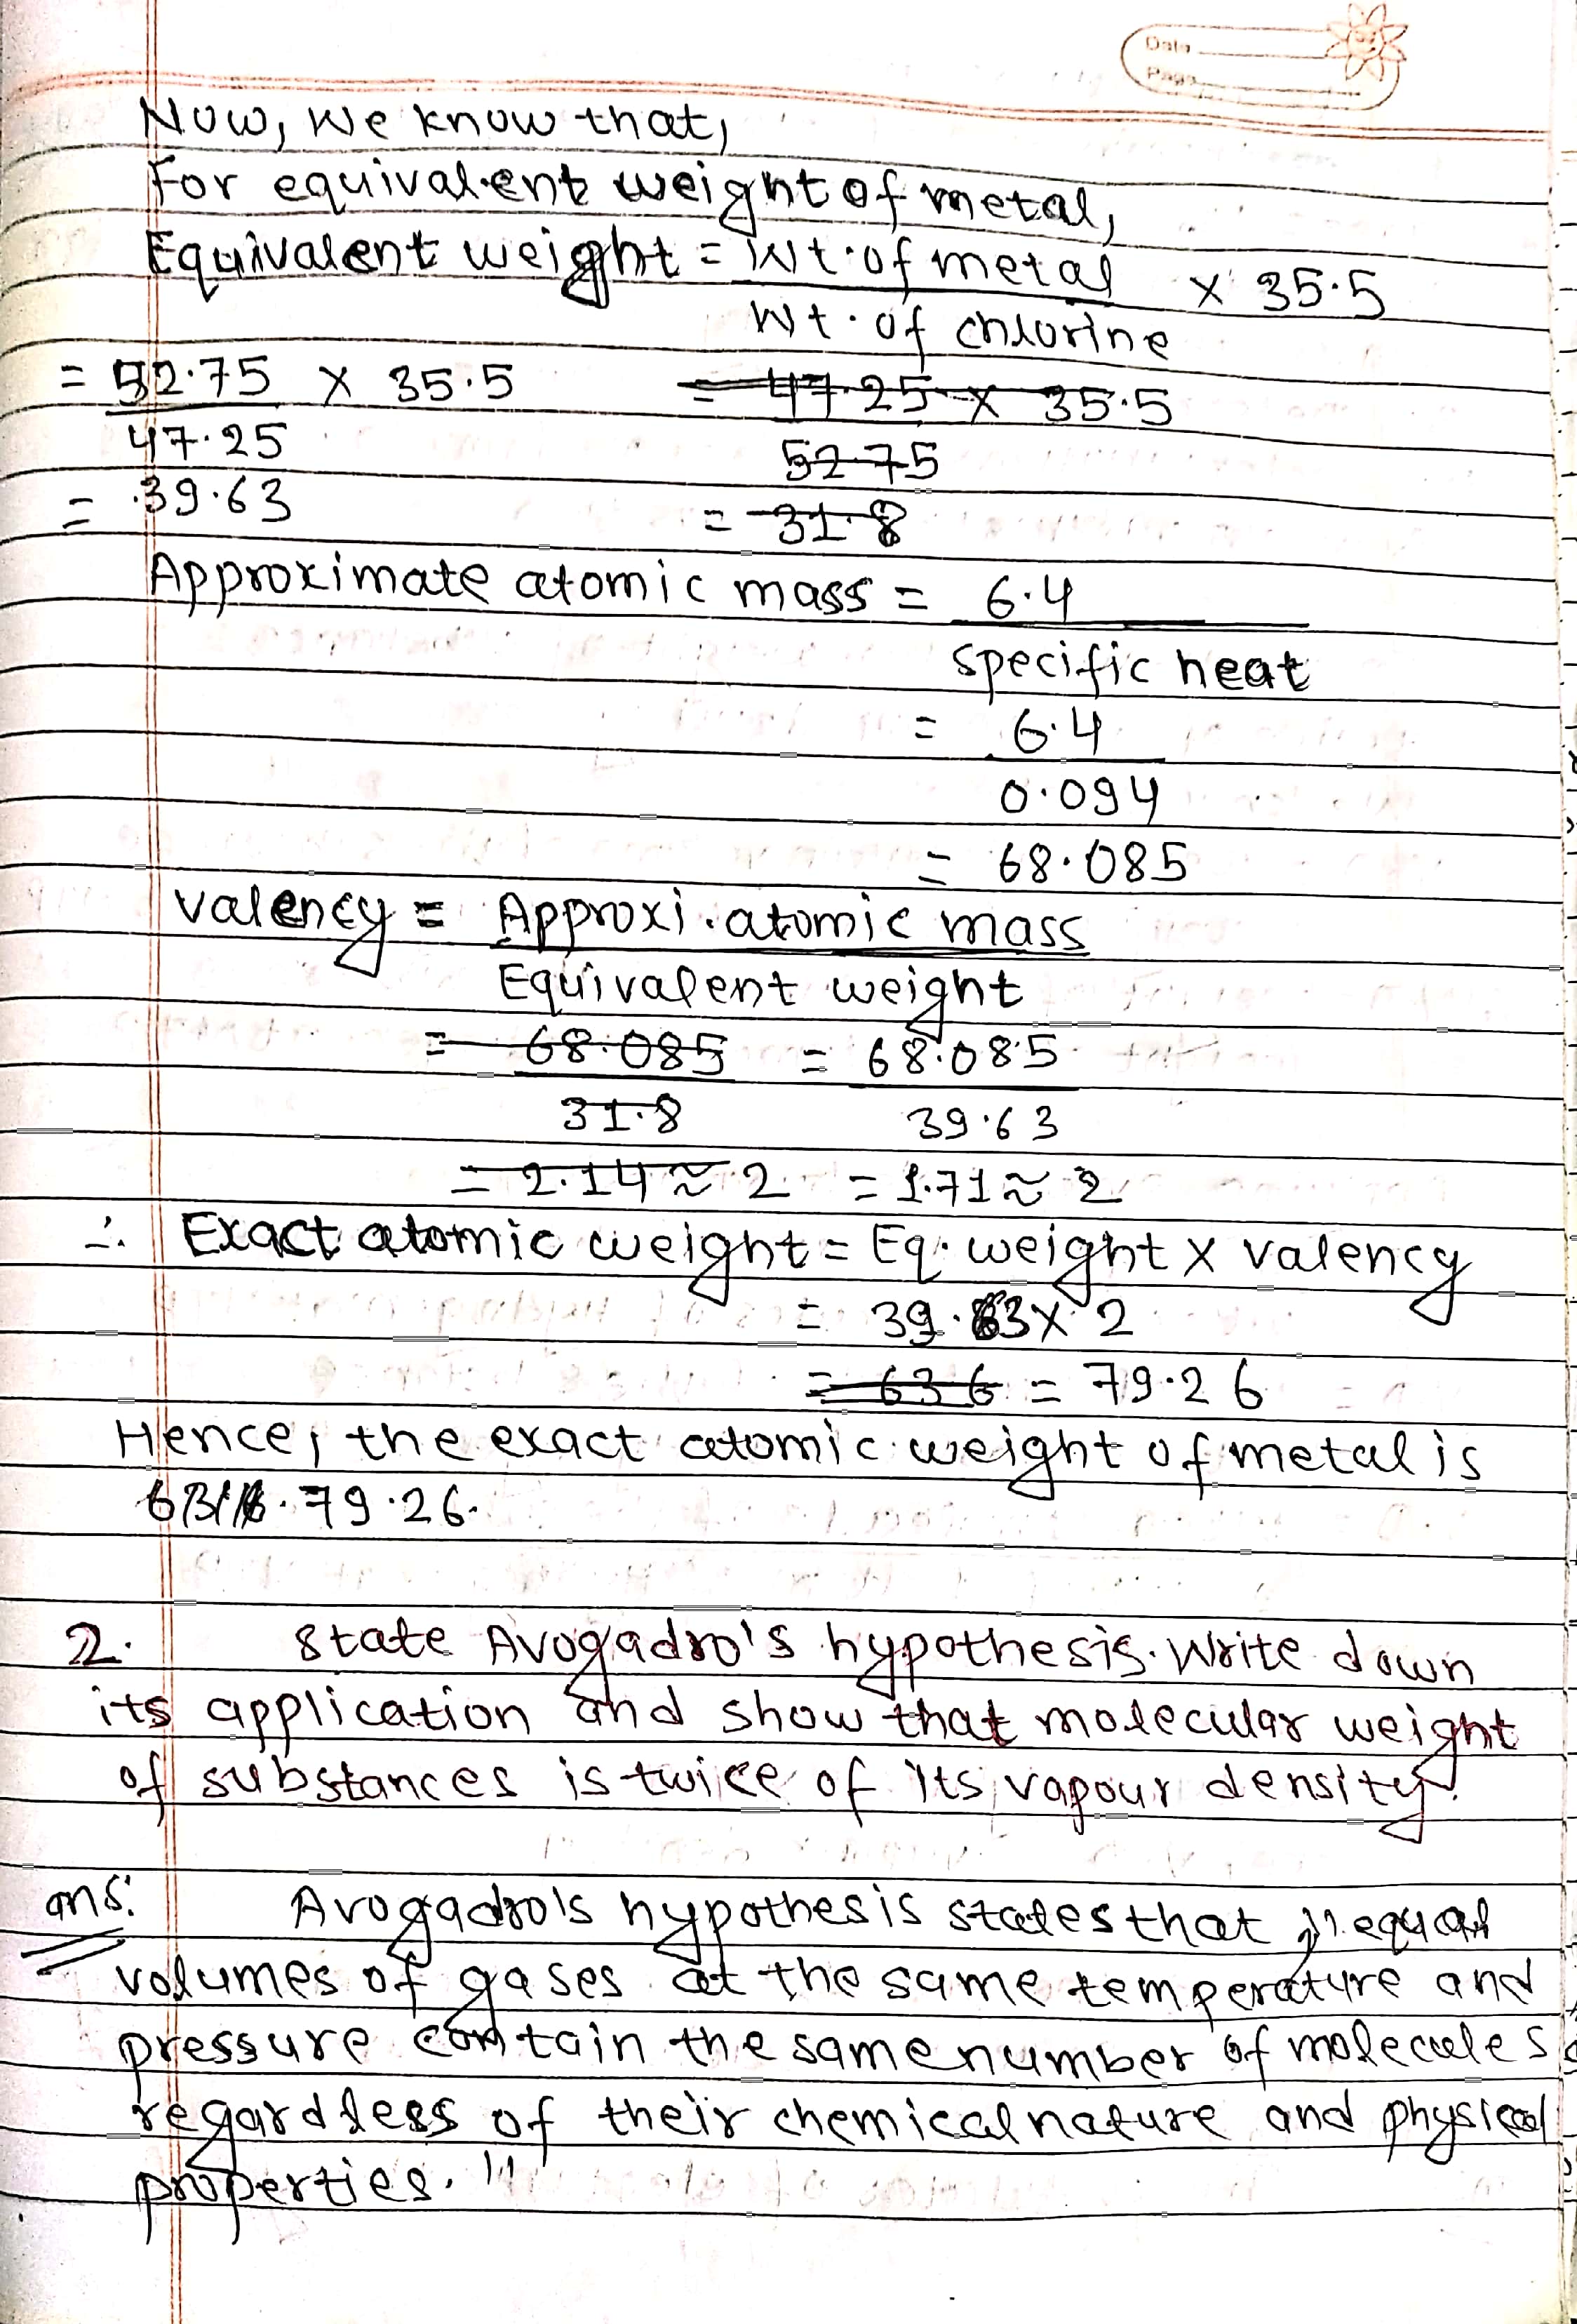 Date
Page
Now, we know that,
For equivalent weight of metal,
Equivalent weight = Wt. of metal x 35.5
Wt. of chlorine
= 52.75 x 35.5 = 47.25 x 35.5
47.25 52.75
= 39.63 = 31.8
Approximate atomic mass = 6.4
specific heat
= 6.4
0.094
= 68.085
valency = Approxi. atomic mass
Equivalent weight
= 68.085 = 68.085
31.8 39.63
= 2.14 ≈ 2 = 1.71 ≈ 2
∴ Exact atomic weight = Eq. weight x valency
= 39.63 x 2
= 63.6 = 79.26
Hence, the exact atomic weight of metal is
79.26.
2. State Avogadro's hypothesis. Write down
its application and show that molecular weight
of substances is twice of its vapour density.
ans: Avogadro's hypothesis states that "equal
volumes of gases at the same temperature and
pressure contain the same number of molecules
regardless of their chemical nature and physical
properties."